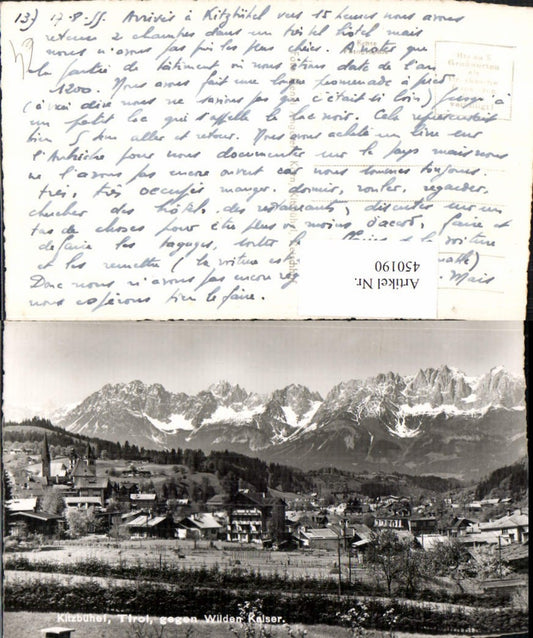 13) 17-8-55. Arrivés à Kitzbühel vers 15 heures nous avons
retenu 2 chambres dans un très bel hôtel mais
nous n'avons pas pris les plus chères. A noter que
la partie de bâtiment où nous étions date de l'an
1200. Nous avons fait une longue promenade à pied
(à vrai dire nous ne savions pas que c'était si loin) jusqu'à
un petit lac qui s'appelle le lac noir. Cela représentait
bien 5 km aller et retour. Nous avons acheté un livre sur
l'Autriche pour nous documenter sur le pays mais nous
ne l'avons pas encore ouvert car nous sommes toujours
très, très occupés manger, dormir, rouler, regarder,
chercher des hôtels, des restaurants, discuter sur un
tas de choses pour être plus ou moins d'accord, faire et
défaire les bagages, sortir la voiture
et les remettre (la voiture es
Donc nous n'avons pas encore Mais
nous espérons bien le faire.
Artikel Nr.
450190
Kitzbühel, Tirol, gegen Wilden Kaiser.